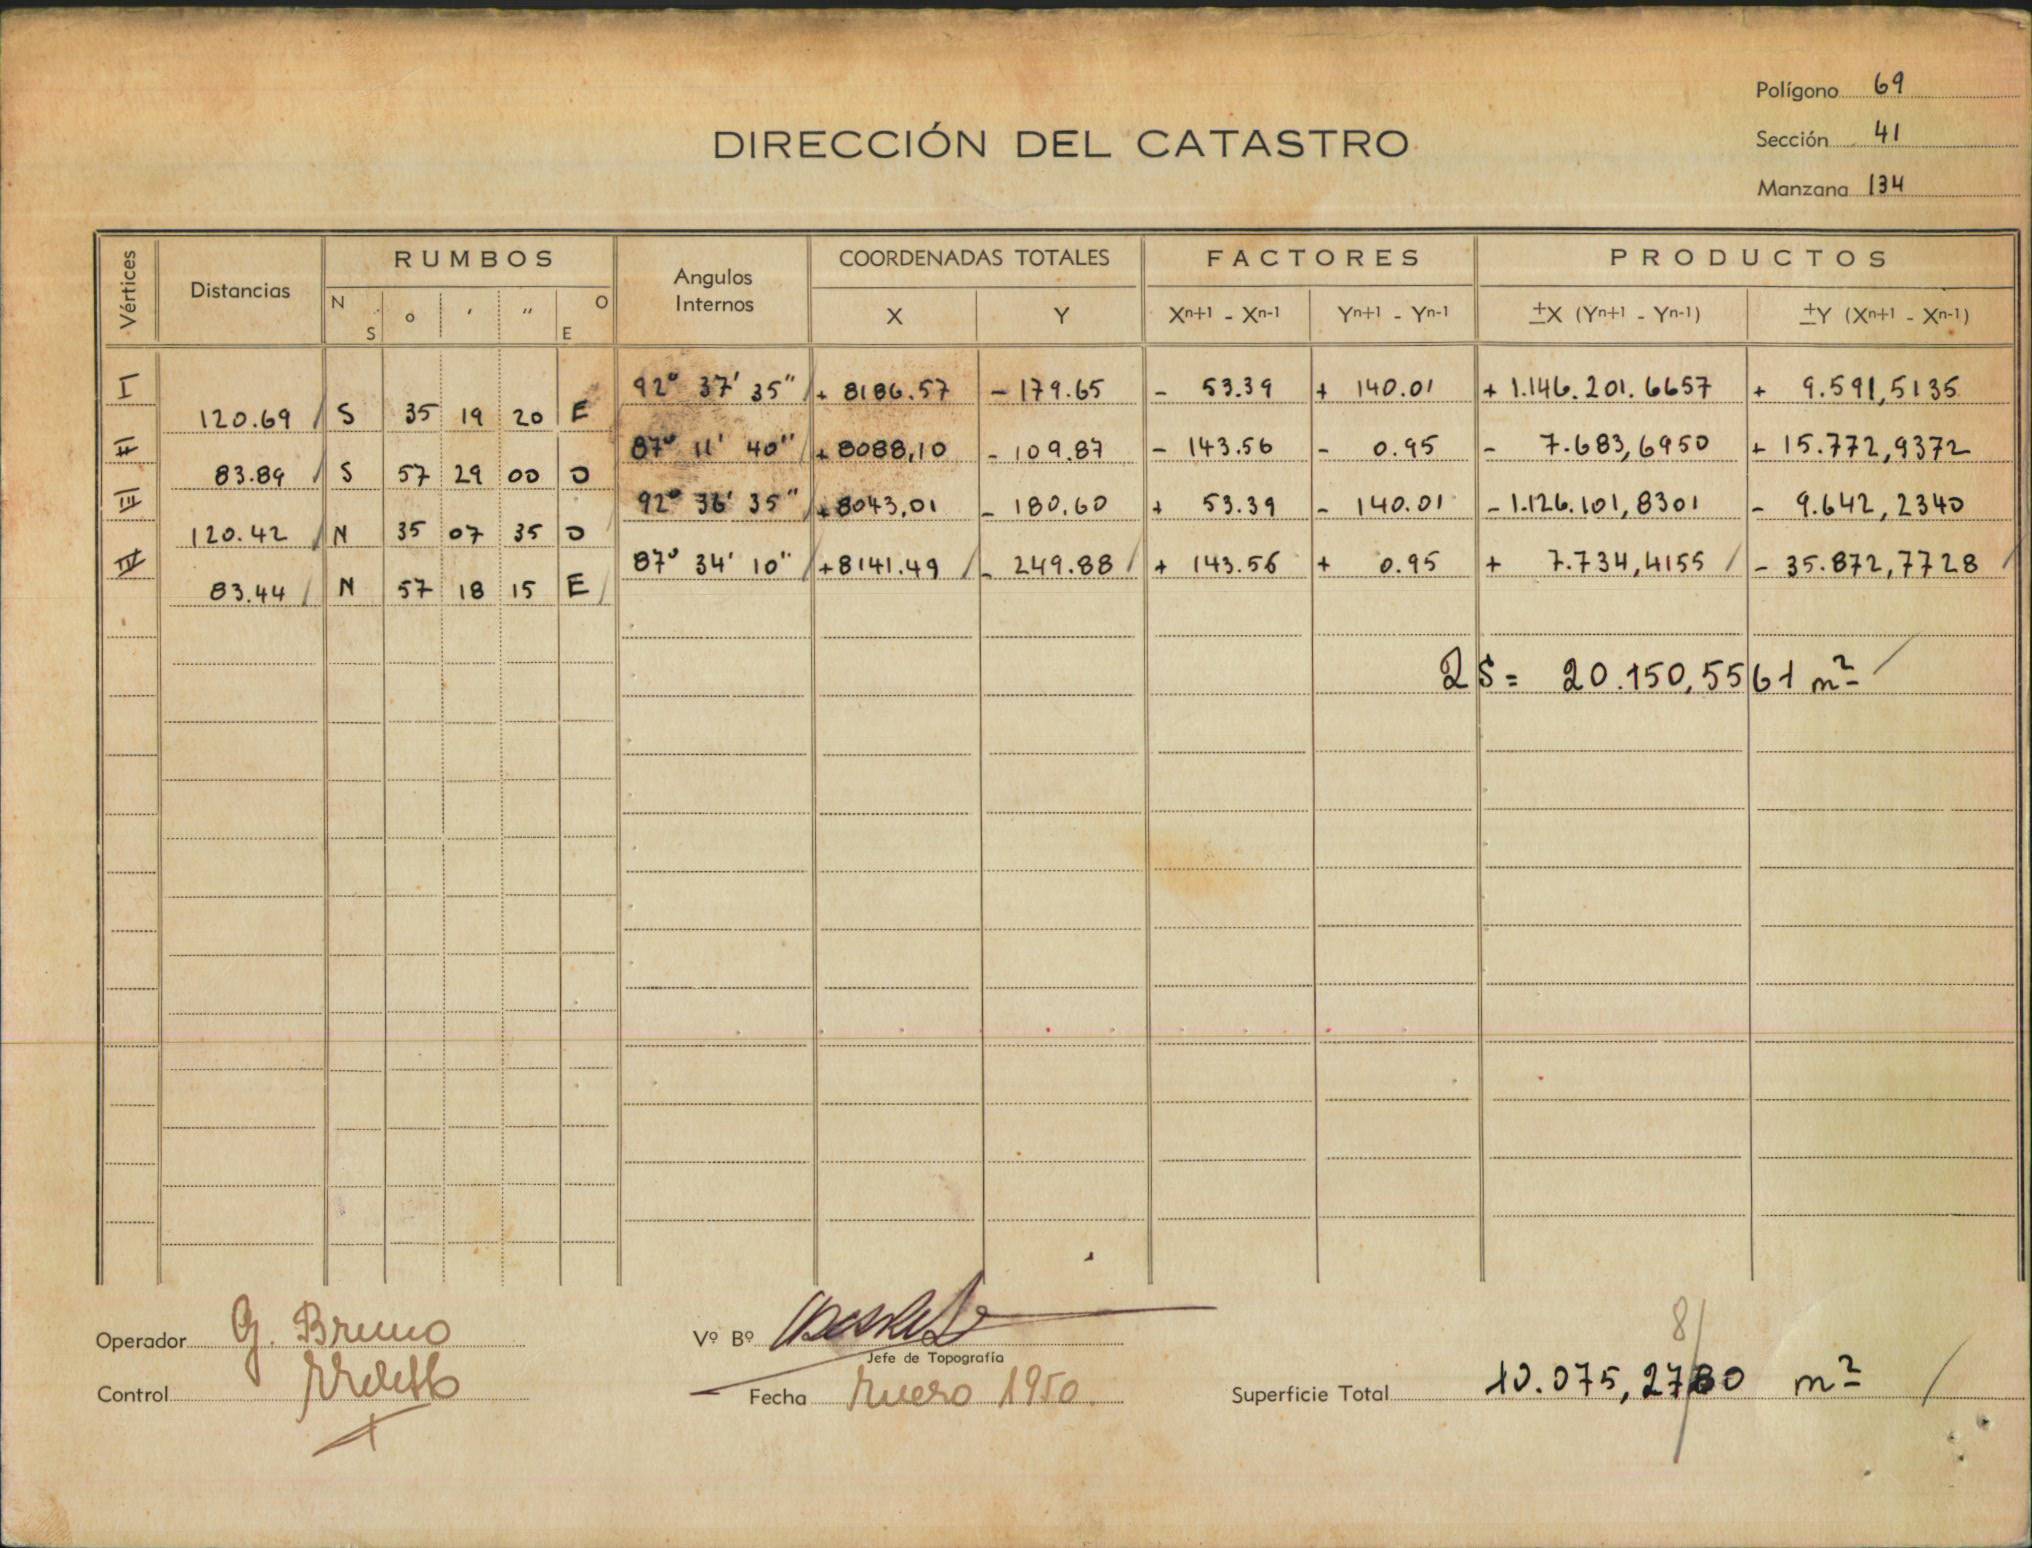 Polígono 69
Sección 41
Manzana 134
DIRECCIÓN DEL CATASTRO
Vértices Distancias RUMBOS Angulos Internos COORDENADAS TOTALES FACTORES PRODUCTOS
N S o ' " O E X Y Xn+1 - Xn-1 Yn+1 - Yn-1 ±X (Yn+1 - Yn-1) ±Y (Xn+1 - Xn-1)
I 92° 37' 35" + 8186.57 - 179.65 - 53.39 + 140.01 + 1.146.201.6657 + 9.591,5135
120.69 S 35 19 20 E
II 87° 11' 40" + 8088,10 - 109.87 - 143.56 - 0.95 - 7.683,6950 + 15.772,9372
83.89 S 57 29 00 O
III 92° 36' 35" + 8043,01 - 180.60 + 53.39 - 140.01 - 1.126.101,8301 - 9.642,2340
120.42 N 35 07 35 O
IV 87° 34' 10" + 8141.49 - 249.88 + 143.56 + 0.95 + 7.734,4155 - 35.872,7728
83.44 N 57 18 15 E
2S = 20.150,5561 m²
Operador G. Bruno
Control
Vº Bº
Jefe de Topografía
Fecha Enero 1950.
8
Superficie Total 10.075,2780 m²